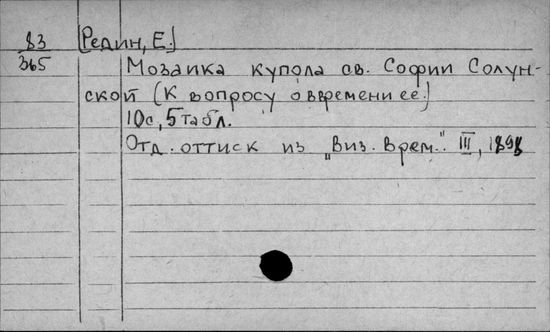 83 [Редин, Е.]
365 Мозаика купола св. Софии Солун-
ской (К вопросу о времени ее.)
10с, 5 табл.
Отд. оттиск из „Виз. Врем." III,